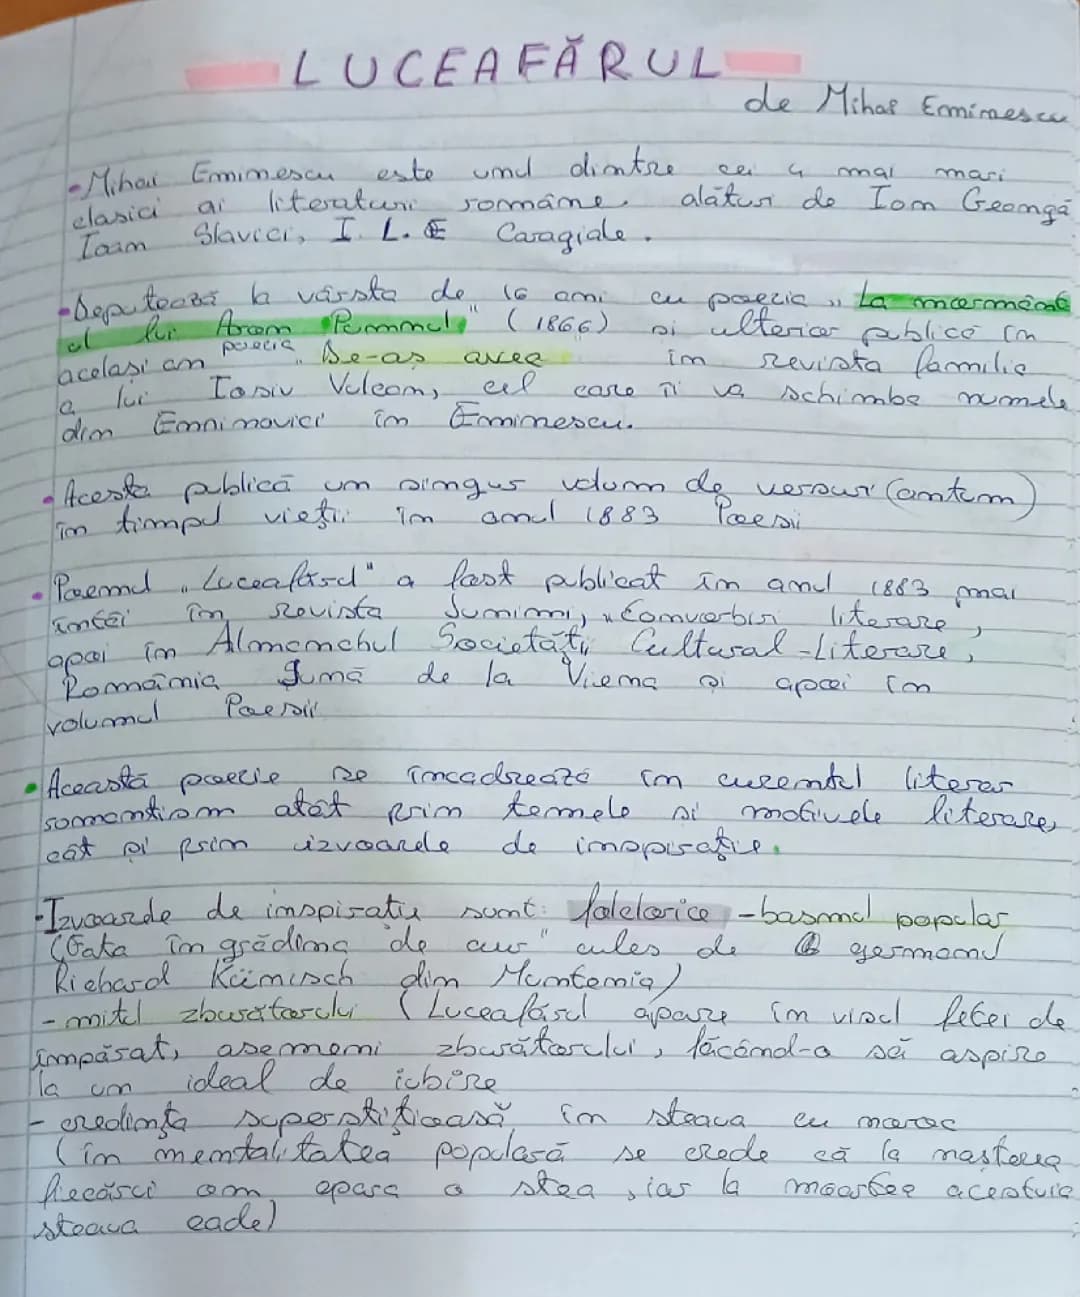 LUCEAFĂRUL
de Mihai Eminescu
• Mihai Eminescu este unul dintre cei 4 mai mari
clasici ai literaturii române, alături de Ion Creangă
Ioan Slavici, I. L. Caragiale.
• Deputează la vârsta de 16 ani cu poezia „La mormânt
ul lui Aron Pumnul" (1866) și ulterior publică în
același an poezia „De-aș avea în revista familia
a lui Iosiv Vulcan, cel care îi va schimba numele
din Emninovici în Eminescu.
• Acesta publică un singur volum de versuri (antum)
în timpul vieții în anul 1883 Poesii
• Poemul „Luceafărul" a fost publicat în anul 1883 mai
întâi în revista Junimii, „Convorbiri literare,
apoi în Almanahul Societății Cultural-Literare,
România Jună de la Viena și apoi în
volumul Poesii
• Această poezie se încadrează în curentul literar
romantism atât prin temele și motivele literare,
cât și prin izvoarele de inspirație.
• Izvoarele de inspirație sunt: folclorice - basmul popular
(Fata în grădina de aur" cules de germanul
Richard Künisch din Muntenia)
- mitul zburătorului (Luceafărul apare în visul fetei de
împărat, asemeni zburătorului, făcând-o să aspire
la un ideal de iubire
- credința superstițioasă în steaua cu noroc
(în mentalitatea populară se crede că la nașterea
fiecărui om, apare o stea, iar la moartea acestuia
steaua cade)